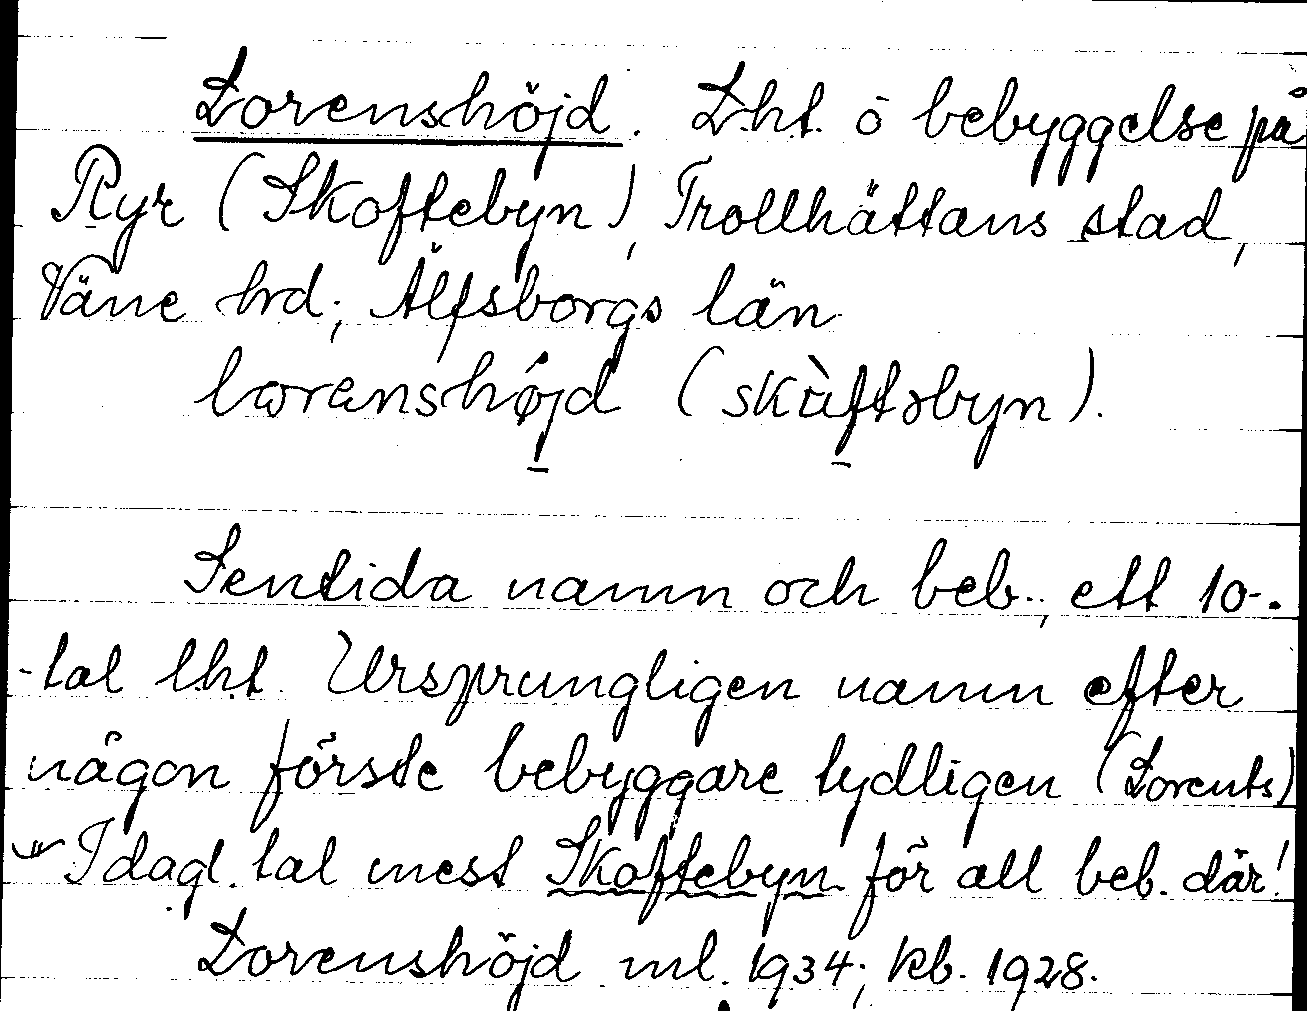 Lorenshöjd. Lht. o bebyggelse på
Ryr (Skoftebyn), Trollhättans stad,
Väne hrd; Älfsborgs län
lorenshöjd (skùftəbyn).
Sentida namn och beb., ett 10-
-tal lht. Ursprungligen namn efter
någon förste bebyggare tydligen (Lorents)
I dagl. tal mest Skoftebyn för all beb. där!
Lorenshöjd ml. 1934; kb. 1928.